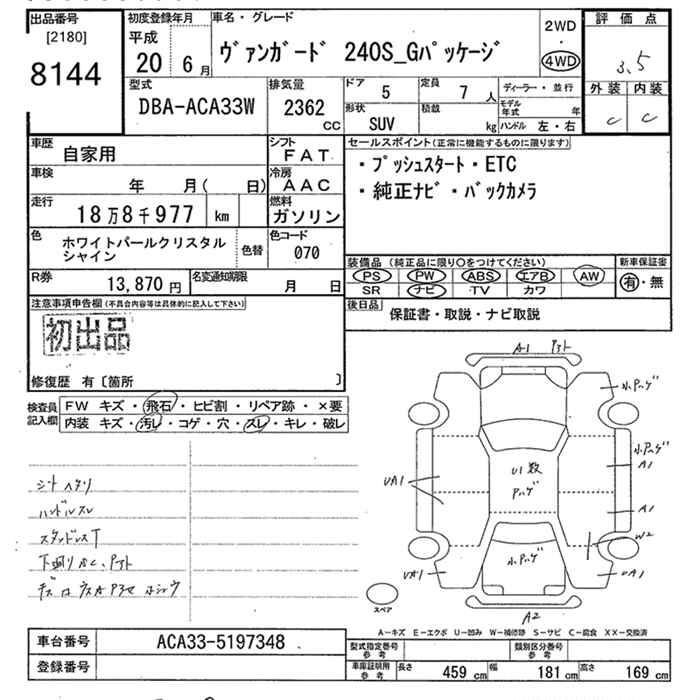 出品番号
[2180]
8144
初度登録年月
平成
20 6月
車名・グレード
ヴァンガード 240S_Gパッケージ
2WD
・
4WD
評価点
3.5
外装 内装
C C
型式
DBA-ACA33W
排気量
2362
CC
ドア
5
定員
7 人
形状
SUV
積載
kg
ディーラー・並行
モデル年式 年
ハンドル 左・右
車歴
自家用
シフト
FAT
車検
年 月( 日)
冷房
AAC
走行
18万8千977 km
燃料
ガソリン
色
ホワイトパールクリスタル
シャイン
色替
色コード
070
R券
13,870 円
名変通知期限
月 日
セールスポイント(正常に機能するものに限ります)
・プッシュスタート・ETC
・純正ナビ・バックカメラ
装備品 (純正品に限り○をつけてください)
PS PW ABS エアB AW
SR ナビ TV カワ
新車保証書
有・無
後日品
保証書・取説・ナビ取説
注意事項申告欄(不具合内容等は具体的に記入して下さい)
初出品
修復歴 有〔箇所 〕
検査員
記入欄
FW キズ・飛石・ヒビ割・リペア跡・×要
内装 キズ・汚レ・コゲ・穴・スレ・キレ・破レ
シートヘタリ
ハンドルスレ
下廻り
A1
小
小
A1
U1 数
UA1
A1
W2
小
UA1
UA1
A2
スペア
A－キズ E－エクボ U－凹み W－補修跡 S－サビ C－腐食 XX－交換済
車台番号
ACA33-5197348
登録番号
型式指定番号
参考
類別区分番号
参考
車庫証明用
参考
長さ 459 cm 幅 181 cm 高さ 169 cm